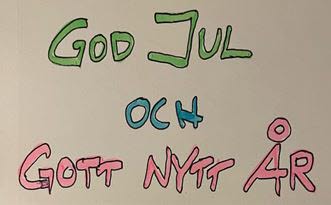 GOD JUL
OCH
GOTT NYTT ÅR